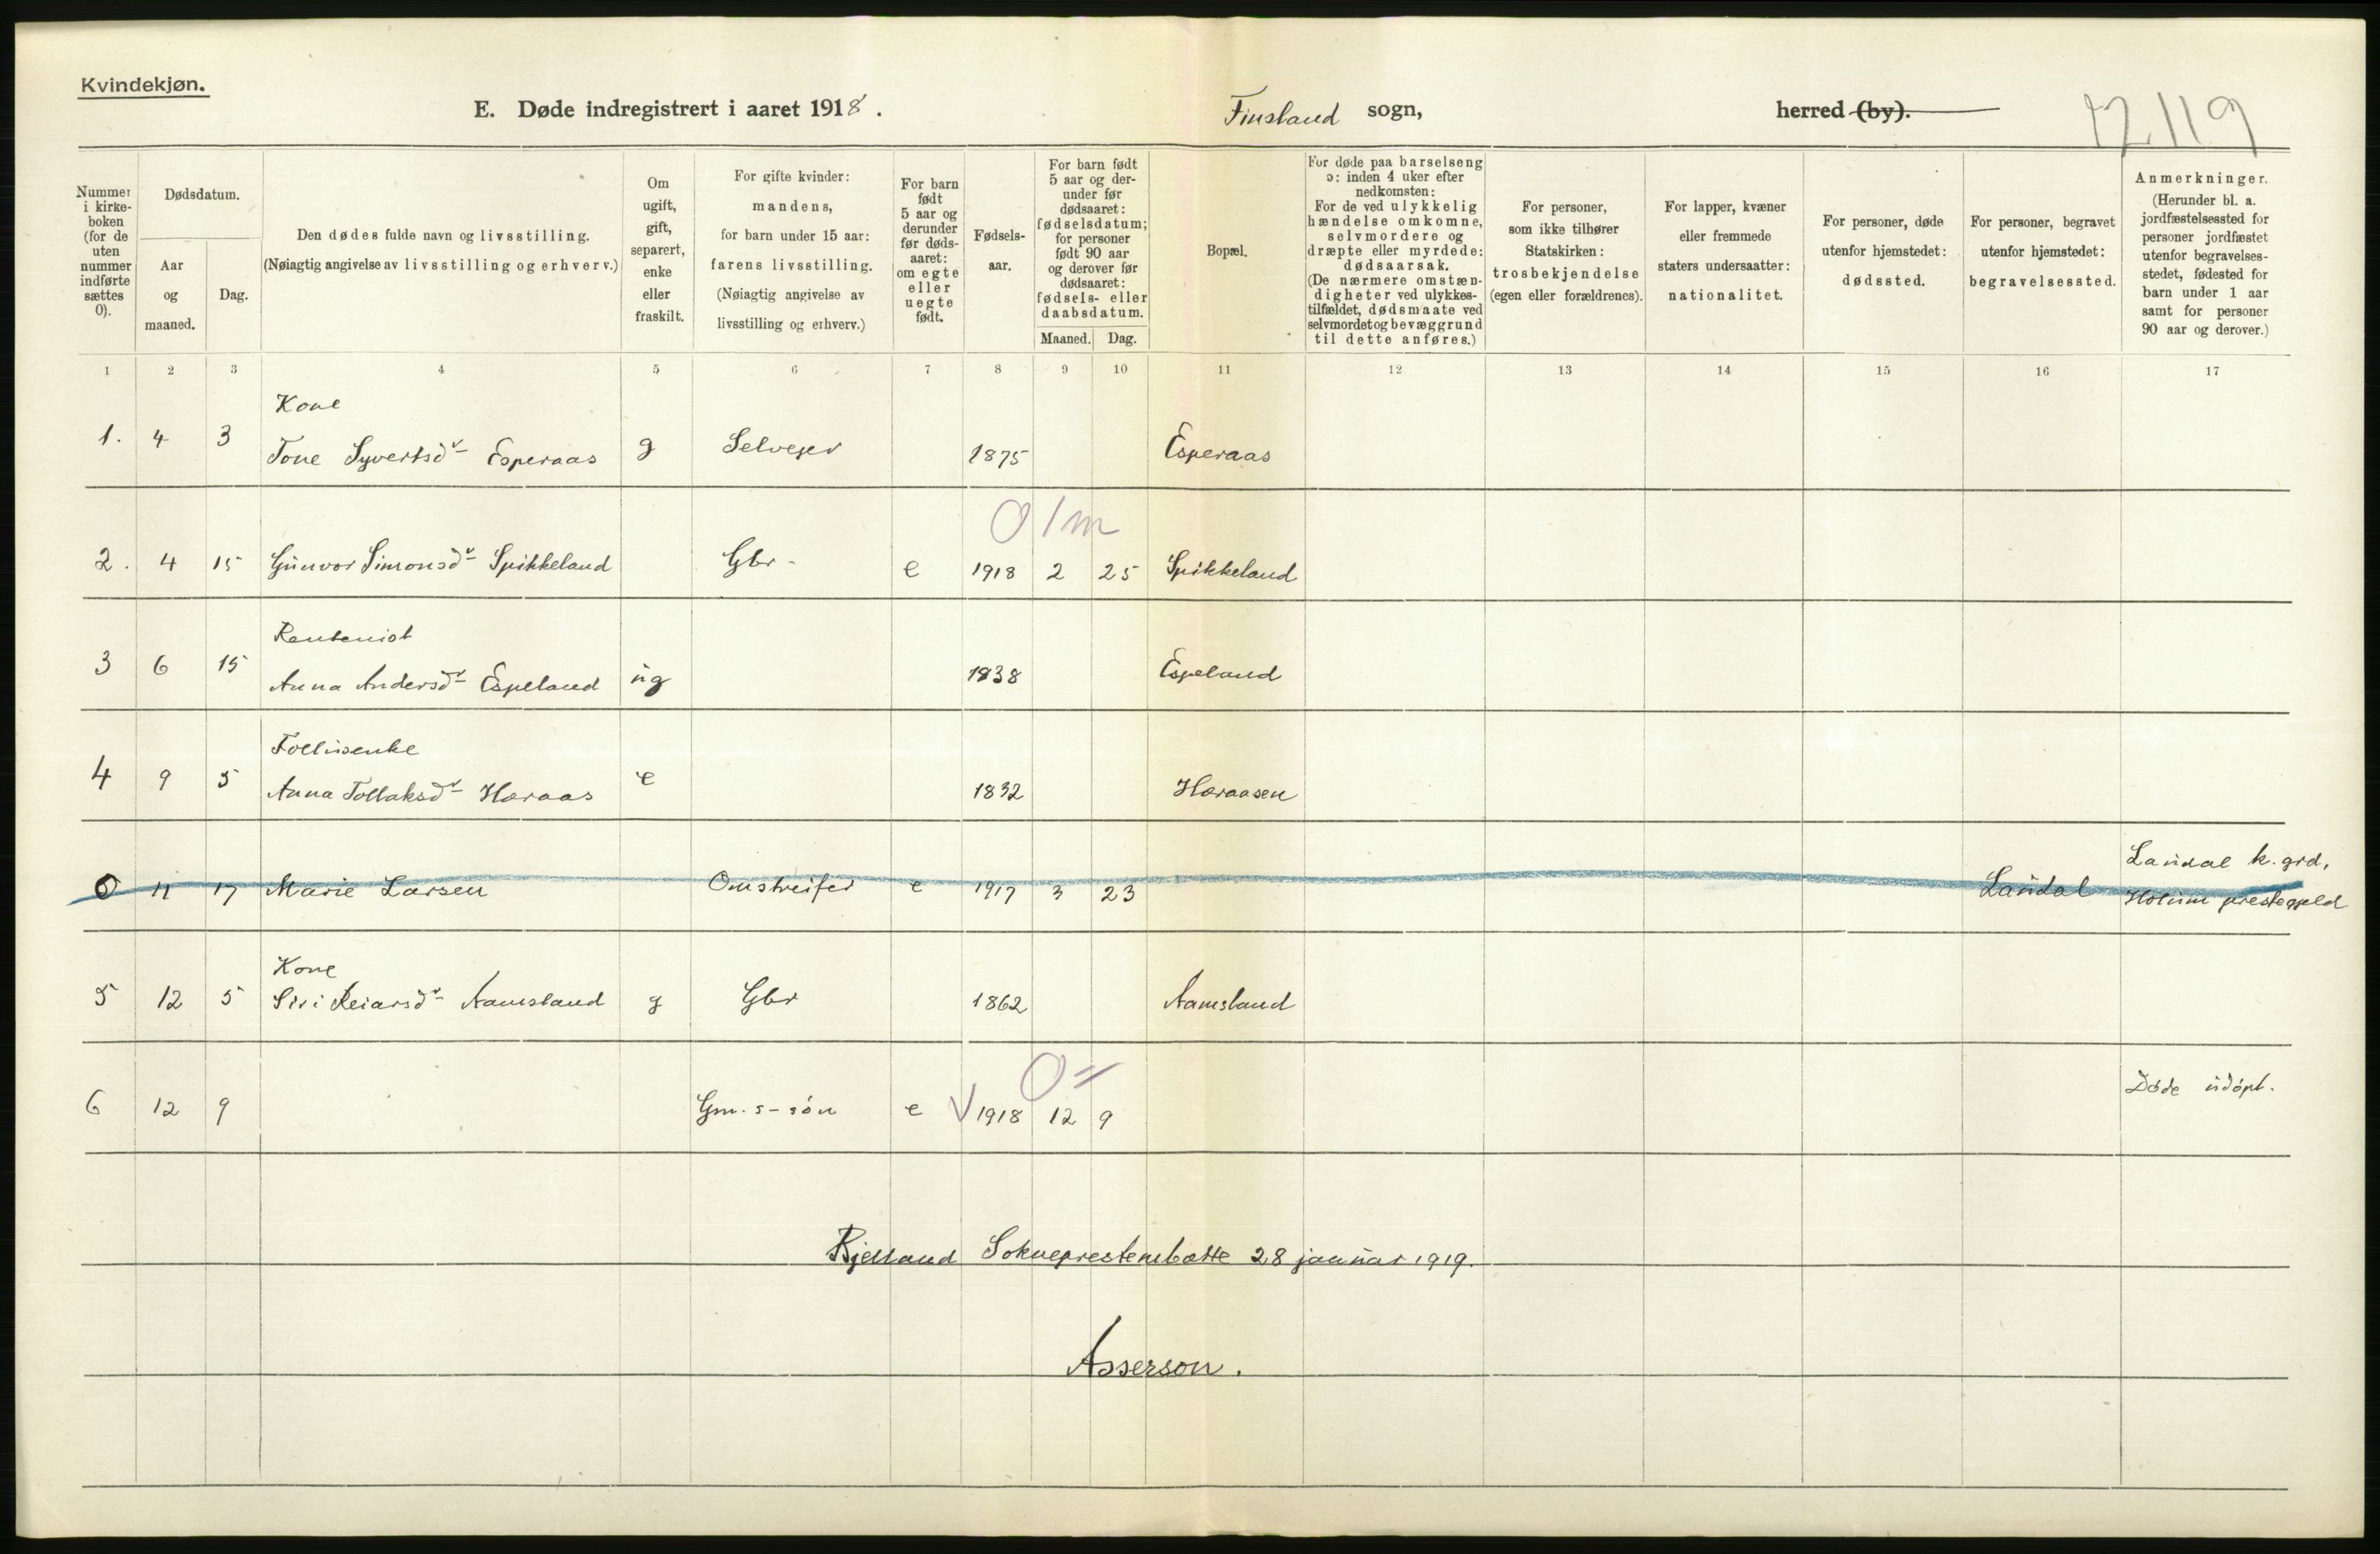 Kvindekjøn.
E. Døde indregistrert i aaret 1918. Finsland sogn, herred (by). 119
Nummer i kirkeboken (for de uten nummer indførte sættes 0).
Dødsdatum.
Aar og maaned.
Dag.
Den dødes fulde navn og livsstilling.
(Nøiagtig angivelse av livsstilling og erhverv.)
Om ugift, gift, separert, enke eller fraskilt.
For gifte kvinder: mandens, for barn under 15 aar: farens livsstilling. (Nøiagtig angivelse av livsstilling og erhverv.)
For barn født 5 aar og derunder før dødsaaret: om egte eller uegte født.
Fødselsaar.
For barn født 5 aar og derunder før dødsaaret: fødselsdatum; for personer født 90 aar og derover før dødsaaret: fødsels- eller daabsdatum.
Maaned. Dag.
Bopæl.
For døde paa barselseng ɔ: inden 4 uker efter nedkomsten: For de ved ulykkelig hændelse omkomne, selvmordere og dræpte eller myrdede: dødsaarsak. (De nærmere omstændigheter ved ulykkestilfældet, dødsmaate ved selvmordet og bevæggrund til dette anføres.)
For personer, som ikke tilhører Statskirken: trosbekjendelse (egen eller forældrenes).
For lapper, kvæner eller fremmede staters undersaatter: nationalitet.
For personer, døde utenfor hjemstedet: dødssted.
For personer, begravet utenfor hjemstedet: begravelsessted.
Anmerkninger. (Herunder bl. a. jordfæstelsessted for personer jordfæstet utenfor begravelsesstedet, fødested for barn under 1 aar samt for personer 90 aar og derover.)
1 2 3 4 5 6 7 8 9 10 11 12 13 14 15 16 17
Kone
1. 4 3 Tone Syvertsdr Esperaas g Selveger 1875 Esperaas
0 1 m
2. 4 15 Gunvor Simonsdr Spikkeland Gbr - e 1918 2 25 Spikkeland
Rentenist
3 6 15 Anna Andersdr Espeland ug 1838 Espeland
Follusenke
4 9 5 Anna Tollaksdr Høraas e 1832 Høraasen
Laudal k. grd,
0 11 17 Marie Larsen Omstreifer e 1917 3 23 Laudal Holum prestegjeld
Kone
5 12 5 Siri Reiarsdr Aamsland g Gbr 1862 Aamsland
0 =
Døde udøpt.
6 12 9 Gm. s-søn e V 1918 12 9
Bjelland Sokneprestembætte 28 januar 1919.
Asserson.